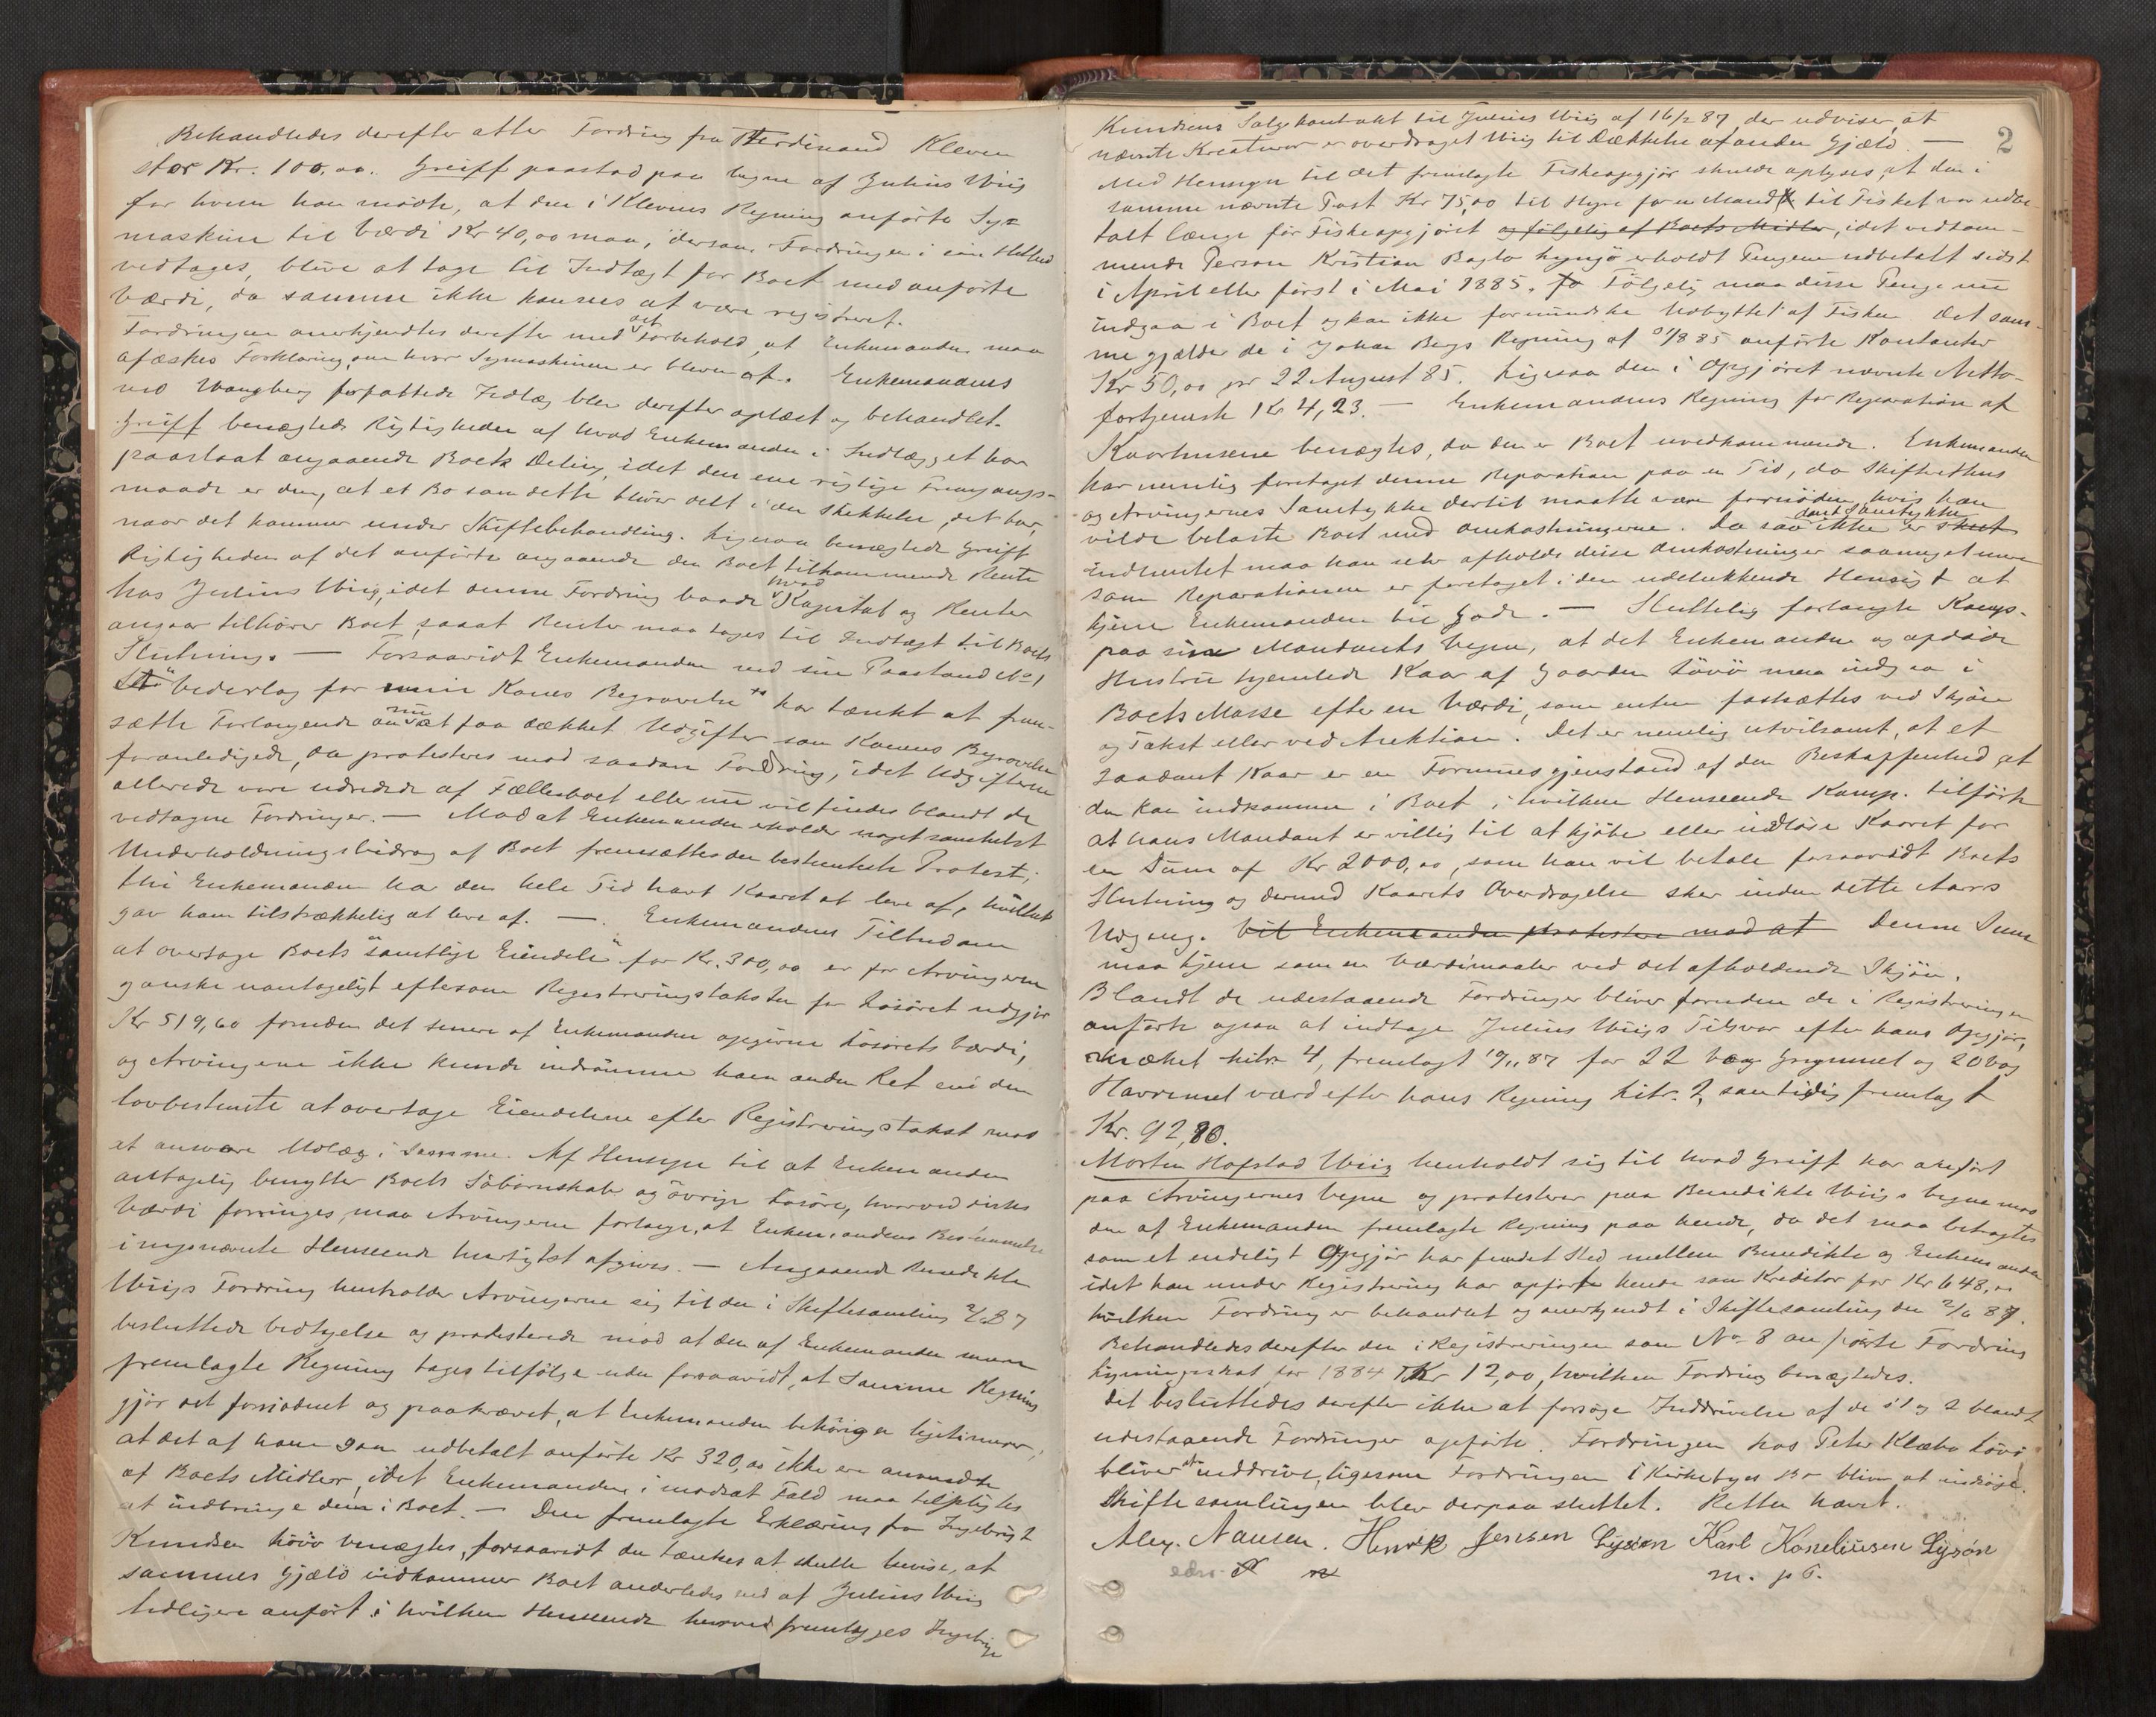 Behandledes derefter atter Fordring fra Ferdinand Kleven
stor Kr. 100,00. Greiff paastod paa Vegne af Julius Wiig
for hvem han mødte, at den i Klevens Regning anførte Sy=
maskine til Værdi Kr 40,00 maa, dersom Fordringen i sin Helhed
vedtages, blive at tage til Indtægt for Boet med anførte
Værdi, da samme ikke kansees at være registreret.
Fordringen anerkjendtes derefter med det Forbehold, at Enkemanden maa
afæskes Forklaring, om hvor Symaskinen er bleven af. Enkemandens
ved Wangberg forfattede Indlæg blev derefter oplæst og behandlet.
Greiff benægtede Rigtigheden af hvad Enkemanden i Indlægget har
paastaat angaaende Boets Deling, idet den ene rigtige Fremgangs-
maade er den, at et Bo som dette bliver delt i den Skikkelse, det har,
naar det kommer under Skiftebehandling. Ligesaa benægtede Greiff
Rigtigheden af det anførte angaaende den Boet tilkommende Rente
hos Julius Wiig, idet denne Fordring baade hvad Kapital og Renter
angaar tilhører Boet, saaat Renter maa tages til Indtægt til Boets
Slutning. — Forsaavidt Enkemanden ved sin Paastand No 1
"Vederlag for min Kones Begravelse" har tænkt at frem-
sætte Forlangende om nu at faa dækket Udgifter som Konens Begravelse
foranledigede, da protesteres mod saadan Fordring, idet Udgifterne
allerede vare udredede af Fællesboet eller nu vil findes blandt de
vedtagne Fordringer. — Mod at Enkemanden erholder noget somhelst
Underholdningsbidrag af Boet fremsættes den bestemteste Protest;
thi Enkemanden har den hele Tid havt Kaaret at leve af, hvilket
gav ham tilstrækkelig at leve af. —. Enkemandens Tilbud om
at overtage Boets "samtlige Eiendele" for Kr. 300,00 er for Arvingerne
ganske uantageligt eftersom Registreringstaksten for Løsøret udgjør
Kr 519,60 foruden det senere af Enkemanden opgivne Løsørets Værdi,
og Arvingerne ikke kunde indrømme ham anden Ret end den
lovbestemte at overtage Eiendelene efter Registreringstakst mod
at ansvare Udlæg i samme. Af Hensyn til at Enkemanden
antagelig benytter Boets Søbørnskab og øvrige Løsøre, hvorved disses
Værdi forringes, maa Arvingerne forlange, at Enkemandens Bestemmelse
i nysnævnte Henseende hurtigst afgives. — Angaaende Benedikte
Wiigs Fordring henholder Arvingerne sig til den i Skiftesamling 2/6 87
besluttede Vedtagelse og protesterede mod at den af Enkemanden
fremlagte Regning tages tilfølge uden forsaavidt, at Samme Regning
gjør det fornødent og paakrævet, at Enkemanden behørigen legitimerer,
at det af ham som udbetalt anførte Kr 320,00 ikke ere anvendte
af Boets Midler, idet Enkemanden i modsat Fald maa tilpligtes
at indbringe dem i Boet. — Den fremlagte Erklæring fra Ingebrigt
Knudsen Løvø benægtes, forsaavidt den tænkes at skulle bevise, at
sammes Gjæld vedkommer Boet anderledes end af Julius Wiig
tidligere anført i hvilken Henseende herved fremlægges Ingebrigt
2
Knudsens Salgskontrakt til Julius Wiig af 16/2 87 der udviser, at
nævnte Kreaturer er overdraget Wiig til Dækkelse af anden Gjæld. —
Med Hensyn til det fremlagte Fiskeopgjør skulde oplyses, at den i
samme nævnte Post Kr 75,00 til Hyre for en Mand til Fisket var udbe-
talt længe før Fiskeopgjøret og følgelig af Boets Midler, idet vedkom-
mende Person Kristian Lyngsø erholdt Pengene udbetalt sidst
i April eller først i Mai 1885. Følgelig maa disse Penge nu
indgaa i Boet og kan ikke formindske Udbyttet af Fisken. Det sam-
me gjælder de i Johan Bergs Regning af 31/8 85 anførte Kontanter
Kr 50,00 pr 22 August 85. Ligesaa den i Opgjøret nævnte Netto-
fortjeneste Kr 4,23. — Enkemandens Regning for Reparation af
Kaarhusene benægtes, da den er Boet uvedkommende. Enkemanden
har nemlig foretaget denne Reparation paa en Tid, da Skiftrettens
og Arvingernes Samtykke dertil maatte være fornøden, hvis han
vilde belaste Boet med Omkostningerne. Da saadant Samtykke ikke er skeet
indhentet maa han selv afholde disse Omkostninger saameget mere
som Reparationen er foretaget i den udelukkende Hensigt at
tjene Enkemanden til Gode. — Sluttelig forlangte Kamp-
paa sin Mandants Vegne, at det Enkemanden og afdøde
Hustru hjemlede Kaar af Gaarden Løvø maa indgaa i
Boets Masse efter en Værdi, som enten fastsættes ved Skjøn
og Takst eller ved Auktion. Det er nemlig utvilsomt, at et
saadant Kaar er en Formuesgjenstand af den Beskaffenhed at
den kan indkomme i Boet, i hvilken Henseende Kamp. tilførte
at hans Mandant er villig til at kjøbe eller indløse Kaaret for
en Sum af Kr 2000,00, som han vil betale forsaavidt Boets
Slutning og dermed Kaarets Overdragelse sker inden dette Aars
Udgang. Vil Enkemanden protestere mod at Denne Sum
maa tjene som en Værdimaaler ved det afholdende Skjøn.
Blandt de udestaaende Fordringer bliver foruden de i Registreringen
anførte ogsaa at indtage Julius Wiigs Tilsvar efter hans Opgjør,
mærket Litr. 4, fremlagt 19/11 87 for 22 Vog Grynmel og 20 Vog
Havremel værd efter hans Regning Litr. 2, samtidig fremlagt
Kr. 92,80.
Morten Hofstad Wiig henholdt sig til hvad Greiff har anført
paa Arvingernes Vegne og protesterer paa Benedikte Wiigs Vegne mod
den af Enkemanden fremlagte Regning paa hende, da det maa betragtes
som et endeligt Opgjør har fundet Sted mellem Benedikte og Enkemanden
idet han under Registrering har opført hende som Kreditor for Kr 648,00
hvilken Fordring er behandlet og anerkjendt i Skiftesamling den 2/6 87.
Behandledes derefter den i Registreringen som No 8 anførte Fordring
Ligningsskat for 1884 Kr 12,00, hvilken Fordring benægtedes.
Det besluttedes derefter ikke at forsøge Inddrivelse af de i 1 og 2 blandt
udestaaende Fordringer opførte. Fordringen hos Peter Klæbo Løvø
bliver at inddrive, ligesom Fordringen i Kirkebyes Bo bliver at indsøge.
Skiftesamlingen blev derpaa sluttet. Retten hævet.
Alex. Nansen. Henrik Jensen Lysøen Karl Korneliusen Lysøn
m. p P.